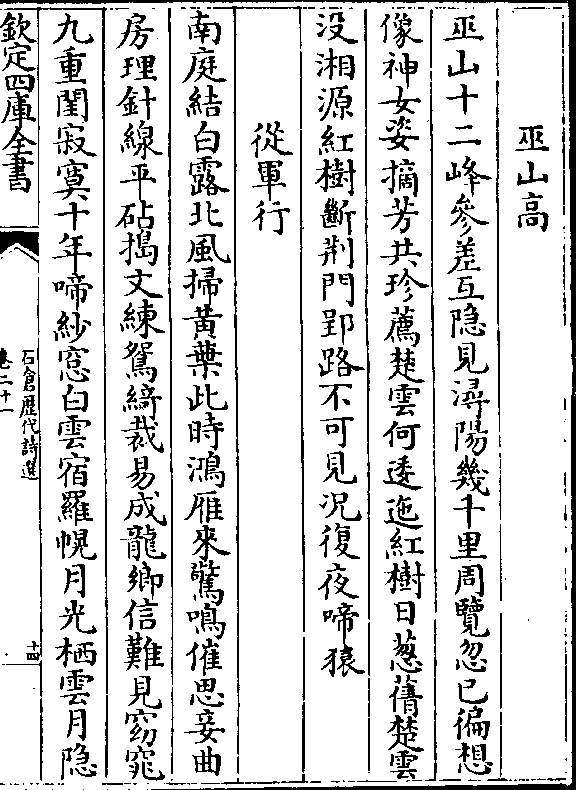 巫山高
巫山十二峰參差互隐見潯陽幾千里周覽忽已徧想
像神女姿摘芳共珍薦楚雲何逶迤紅樹日葱蒨楚雲
没湘源紅樹斷荆門郢路不可見况復夜啼猿
從軍行
南庭結白露北風掃黄葉此時鴻雁來驚鳴催思妾曲
房理針線平砧搗文練鴛綺裁易成龍鄉信難見窈窕
九重閨寂寞十年啼紗窓白雲宿羅幌月光栖雲月隐
欽定四庫全書
石倉歴代詩選
卷二十一
十四